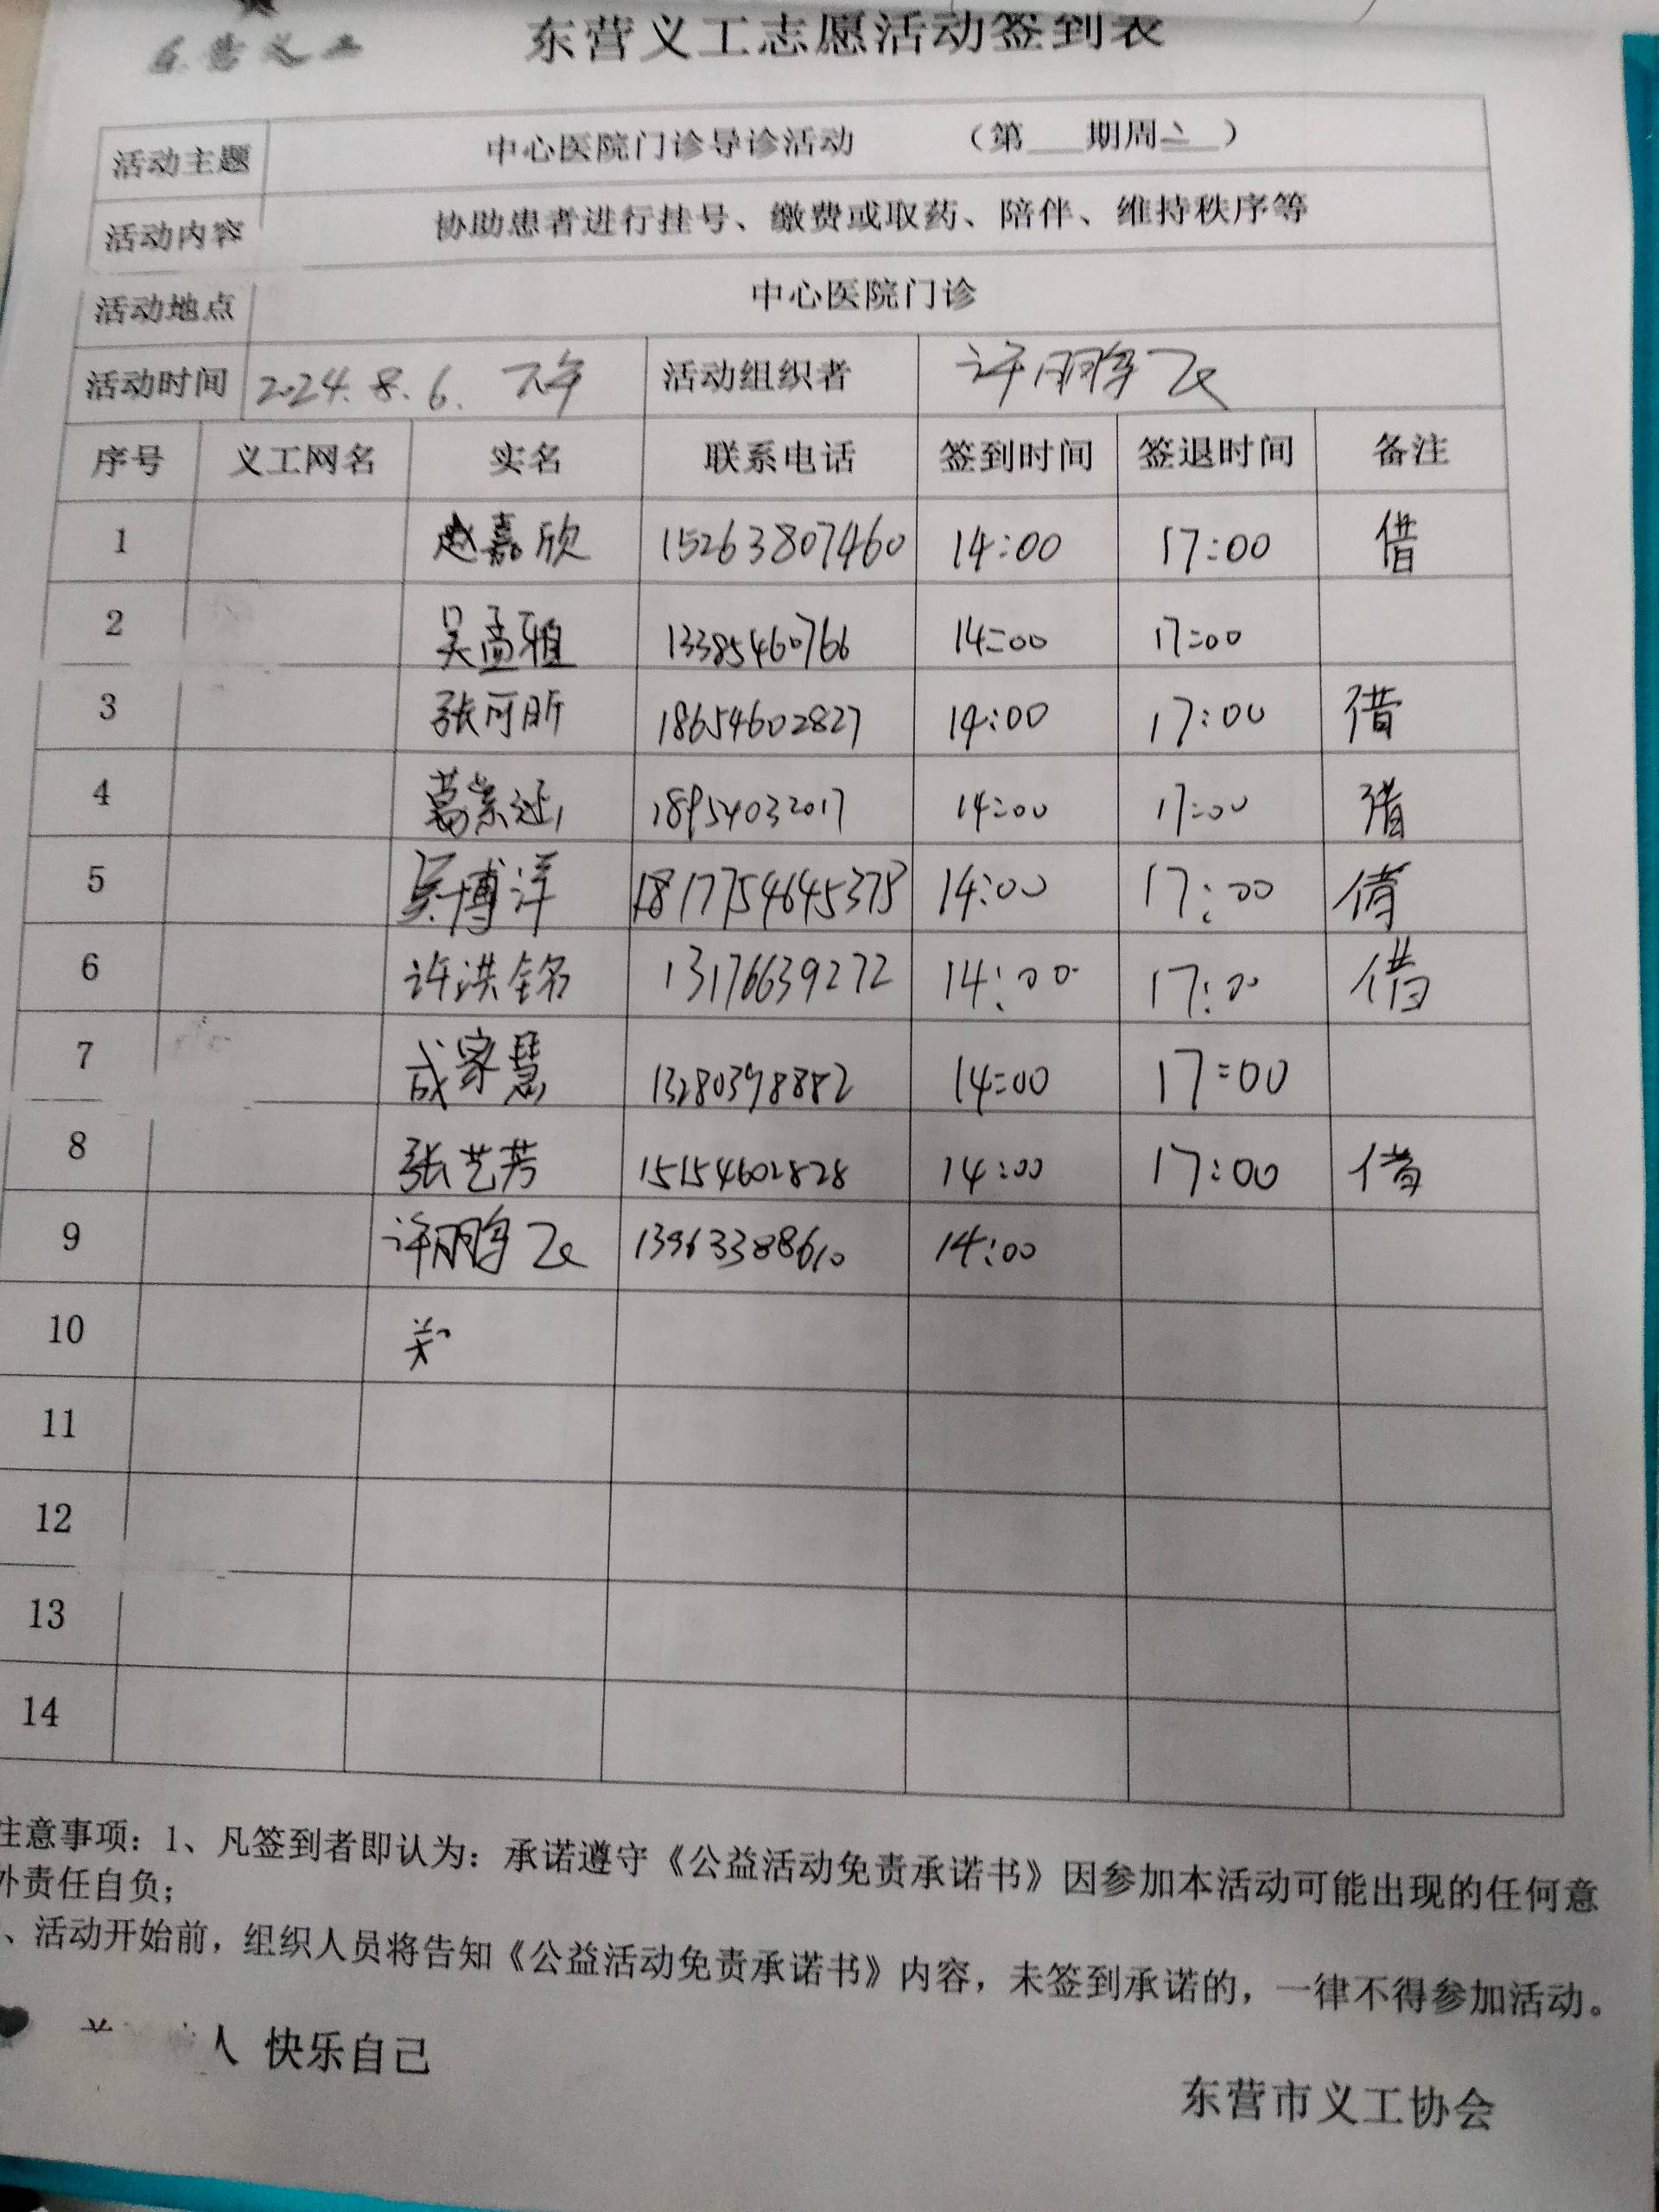 东营义工
东营义工志愿活动签到表
活动主题 中心医院门诊导诊活动 （第 期周二）
活动内容 协助患者进行挂号、缴费或取药、陪伴、维持秩序等
活动地点 中心医院门诊
活动时间 2024.8.6. 下午 活动组织者 许鹏飞
序号 义工网名 实名 联系电话 签到时间 签退时间 备注
1 赵嘉欣 15263807460 14:00 17:00 借
2 吴孟雅 13385460766 14:00 17:00
3 张可昕 18654602827 14:00 17:00 借
4 葛崇 18954032017 14:00 17:00 借
5 吴博洋 14:00 17:00 借
6 许洪铭 13176639272 14:00 17:00 借
7 成家慧 13280398882 14:00 17:00
8 张艺芳 15154602828 14:00 17:00 借
9 许鹏飞 13963388610 14:00
10
11
12
13
14
注意事项：1、凡签到者即认为：承诺遵守《公益活动免责承诺书》因参加本活动可能出现的任何意
外责任自负；
、活动开始前，组织人员将告知《公益活动免责承诺书》内容，未签到承诺的，一律不得参加活动。
人 快乐自己
东营市义工协会